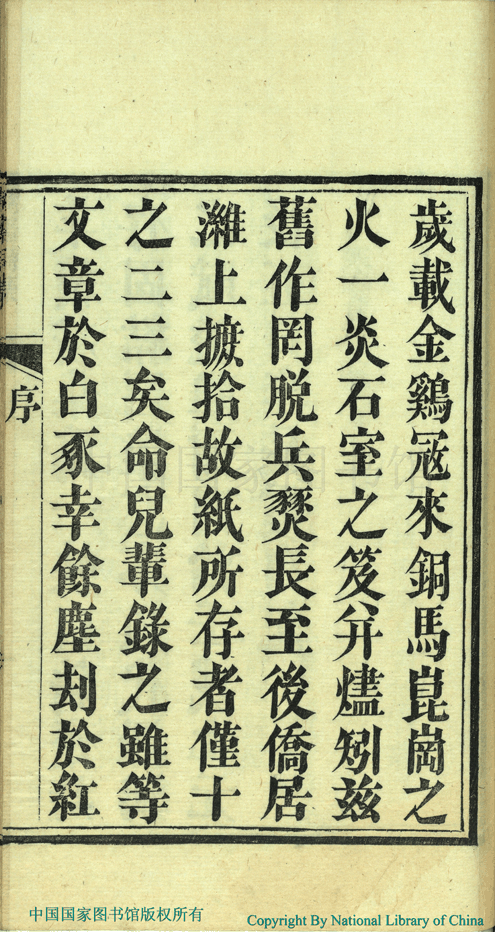 歲載金鷄冦來銅馬崑崗之
火一炎石室之笈并爐矧兹
舊作罔脱兵燹長至後僑居
濰上摭拾故紙所存者僅十
之二三矣命兒輩錄之雖等
文章於白豕幸餘塵刦於紅
序
中国国家图书馆版权所有
Copyright By National Library of China